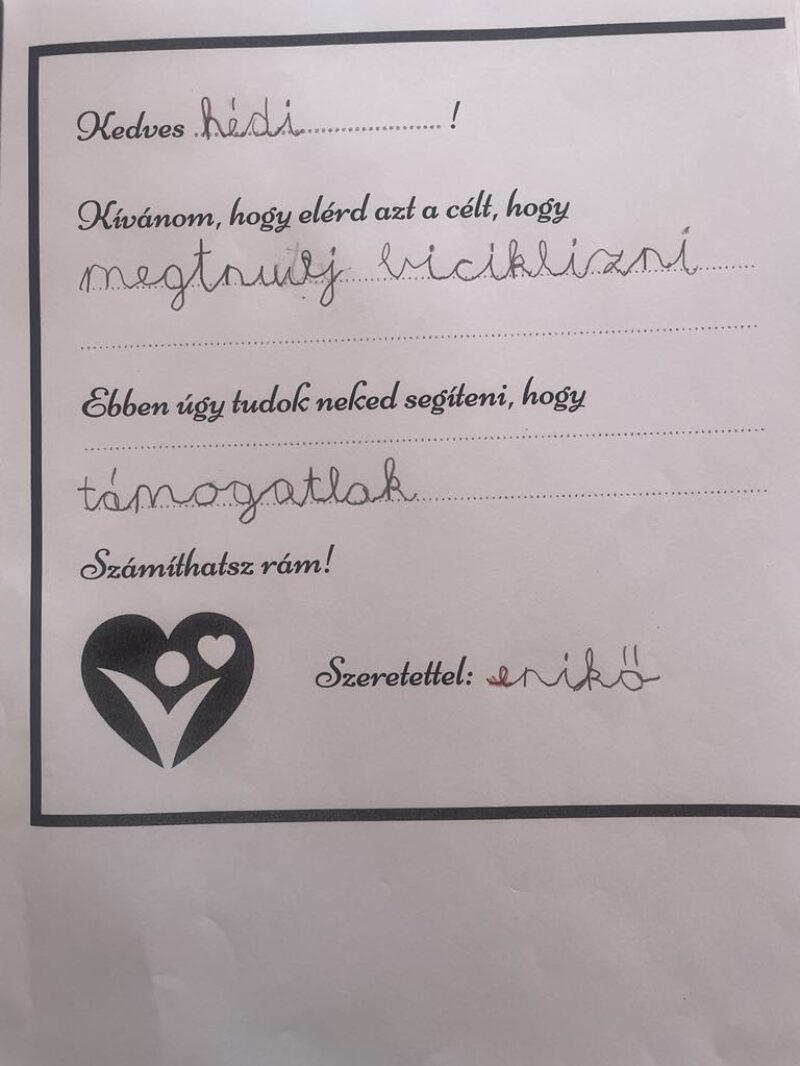 Kedves hédi !
Kívánom, hogy elérd azt a célt, hogy
megtnulj biciklizni
Ebben úgy tudok neked segíteni, hogy
támogatlak
Számíthatsz rám!
Szeretettel: enikő